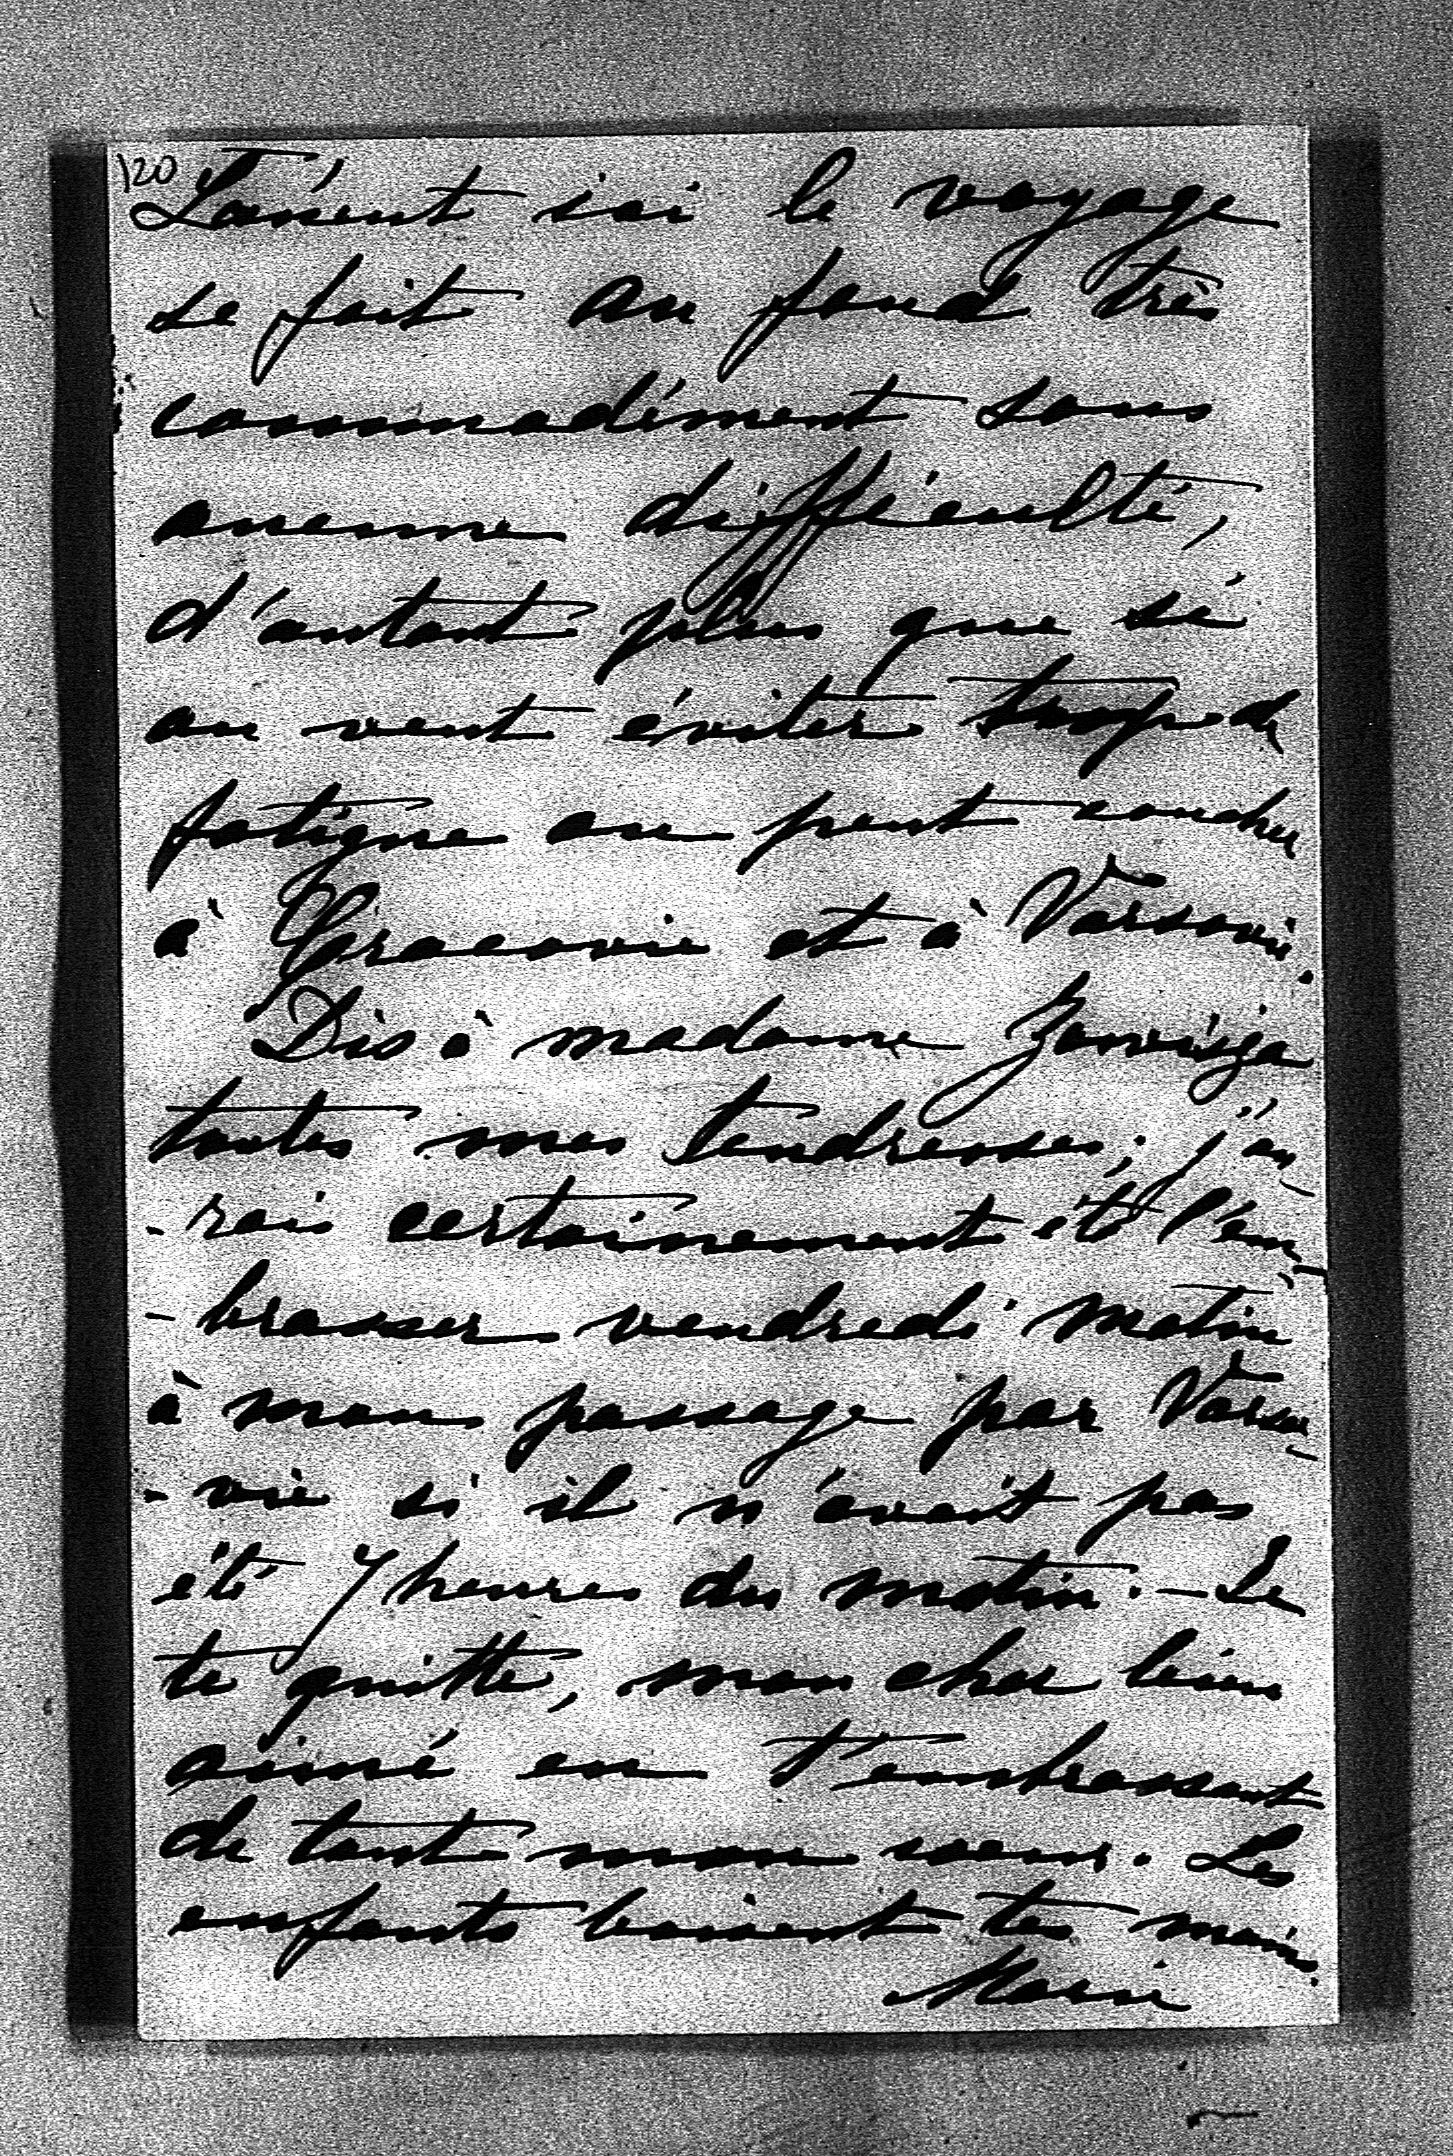 120
Lainent ici le voyage
se fait au fond très
commodément sans
aucune difficulté,
d'autant plus que si
on veut éviter trop de
fatigue on peut coucher
à Cracovie et à Varsovie.
Dis à madame
toutes mes tendresses; j'au-
-rais certainement été l'em-
-brasser vendredi matin
à mon passage par Varso-
-vie si il n'avait pas
été 7 heures du matin. - Je
te quitte, mon cher bien
aimé en t'embrassant
de tout mon coeur. Les
enfants baisent tes mains.
Marie